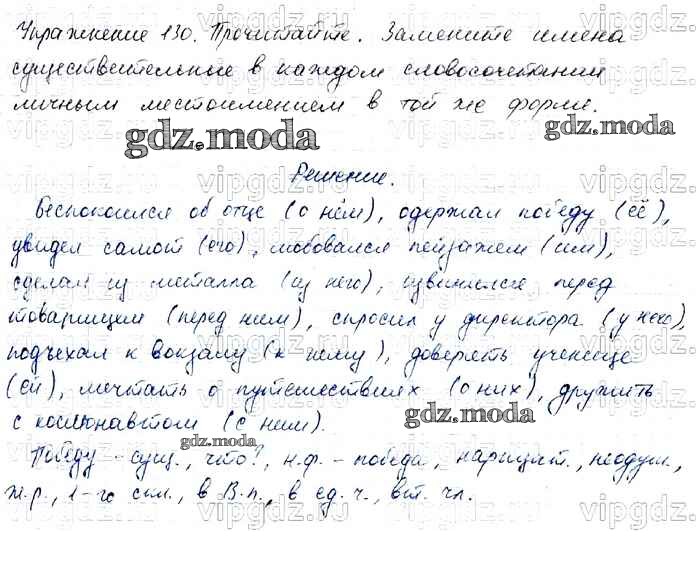 Упражнение 130. Прочитайте. Замените имена
существительные в каждом словосочетании
личным местоимением в той же форме.
gdz.moda gdz.moda
Решение.
Беспокоился об отце (о нём), одержал победу (её),
увидел самолёт (его), любовался пейзажем (им),
сделан из металла (из него), извинился перед
товарищем (перед ним), спросил у директора (у него),
подъехал к вокзалу (к нему), доверять ученице
(ей), мечтать о путешествиях (о них), дружить
с космонавтом (с ним).
gdz.moda
gdz.moda
Победу - сущ., что?, н.ф. - победа, нарицат., неодуш.,
ж.р., 1-е скл., в В.п., в ед.ч., вт. чл.